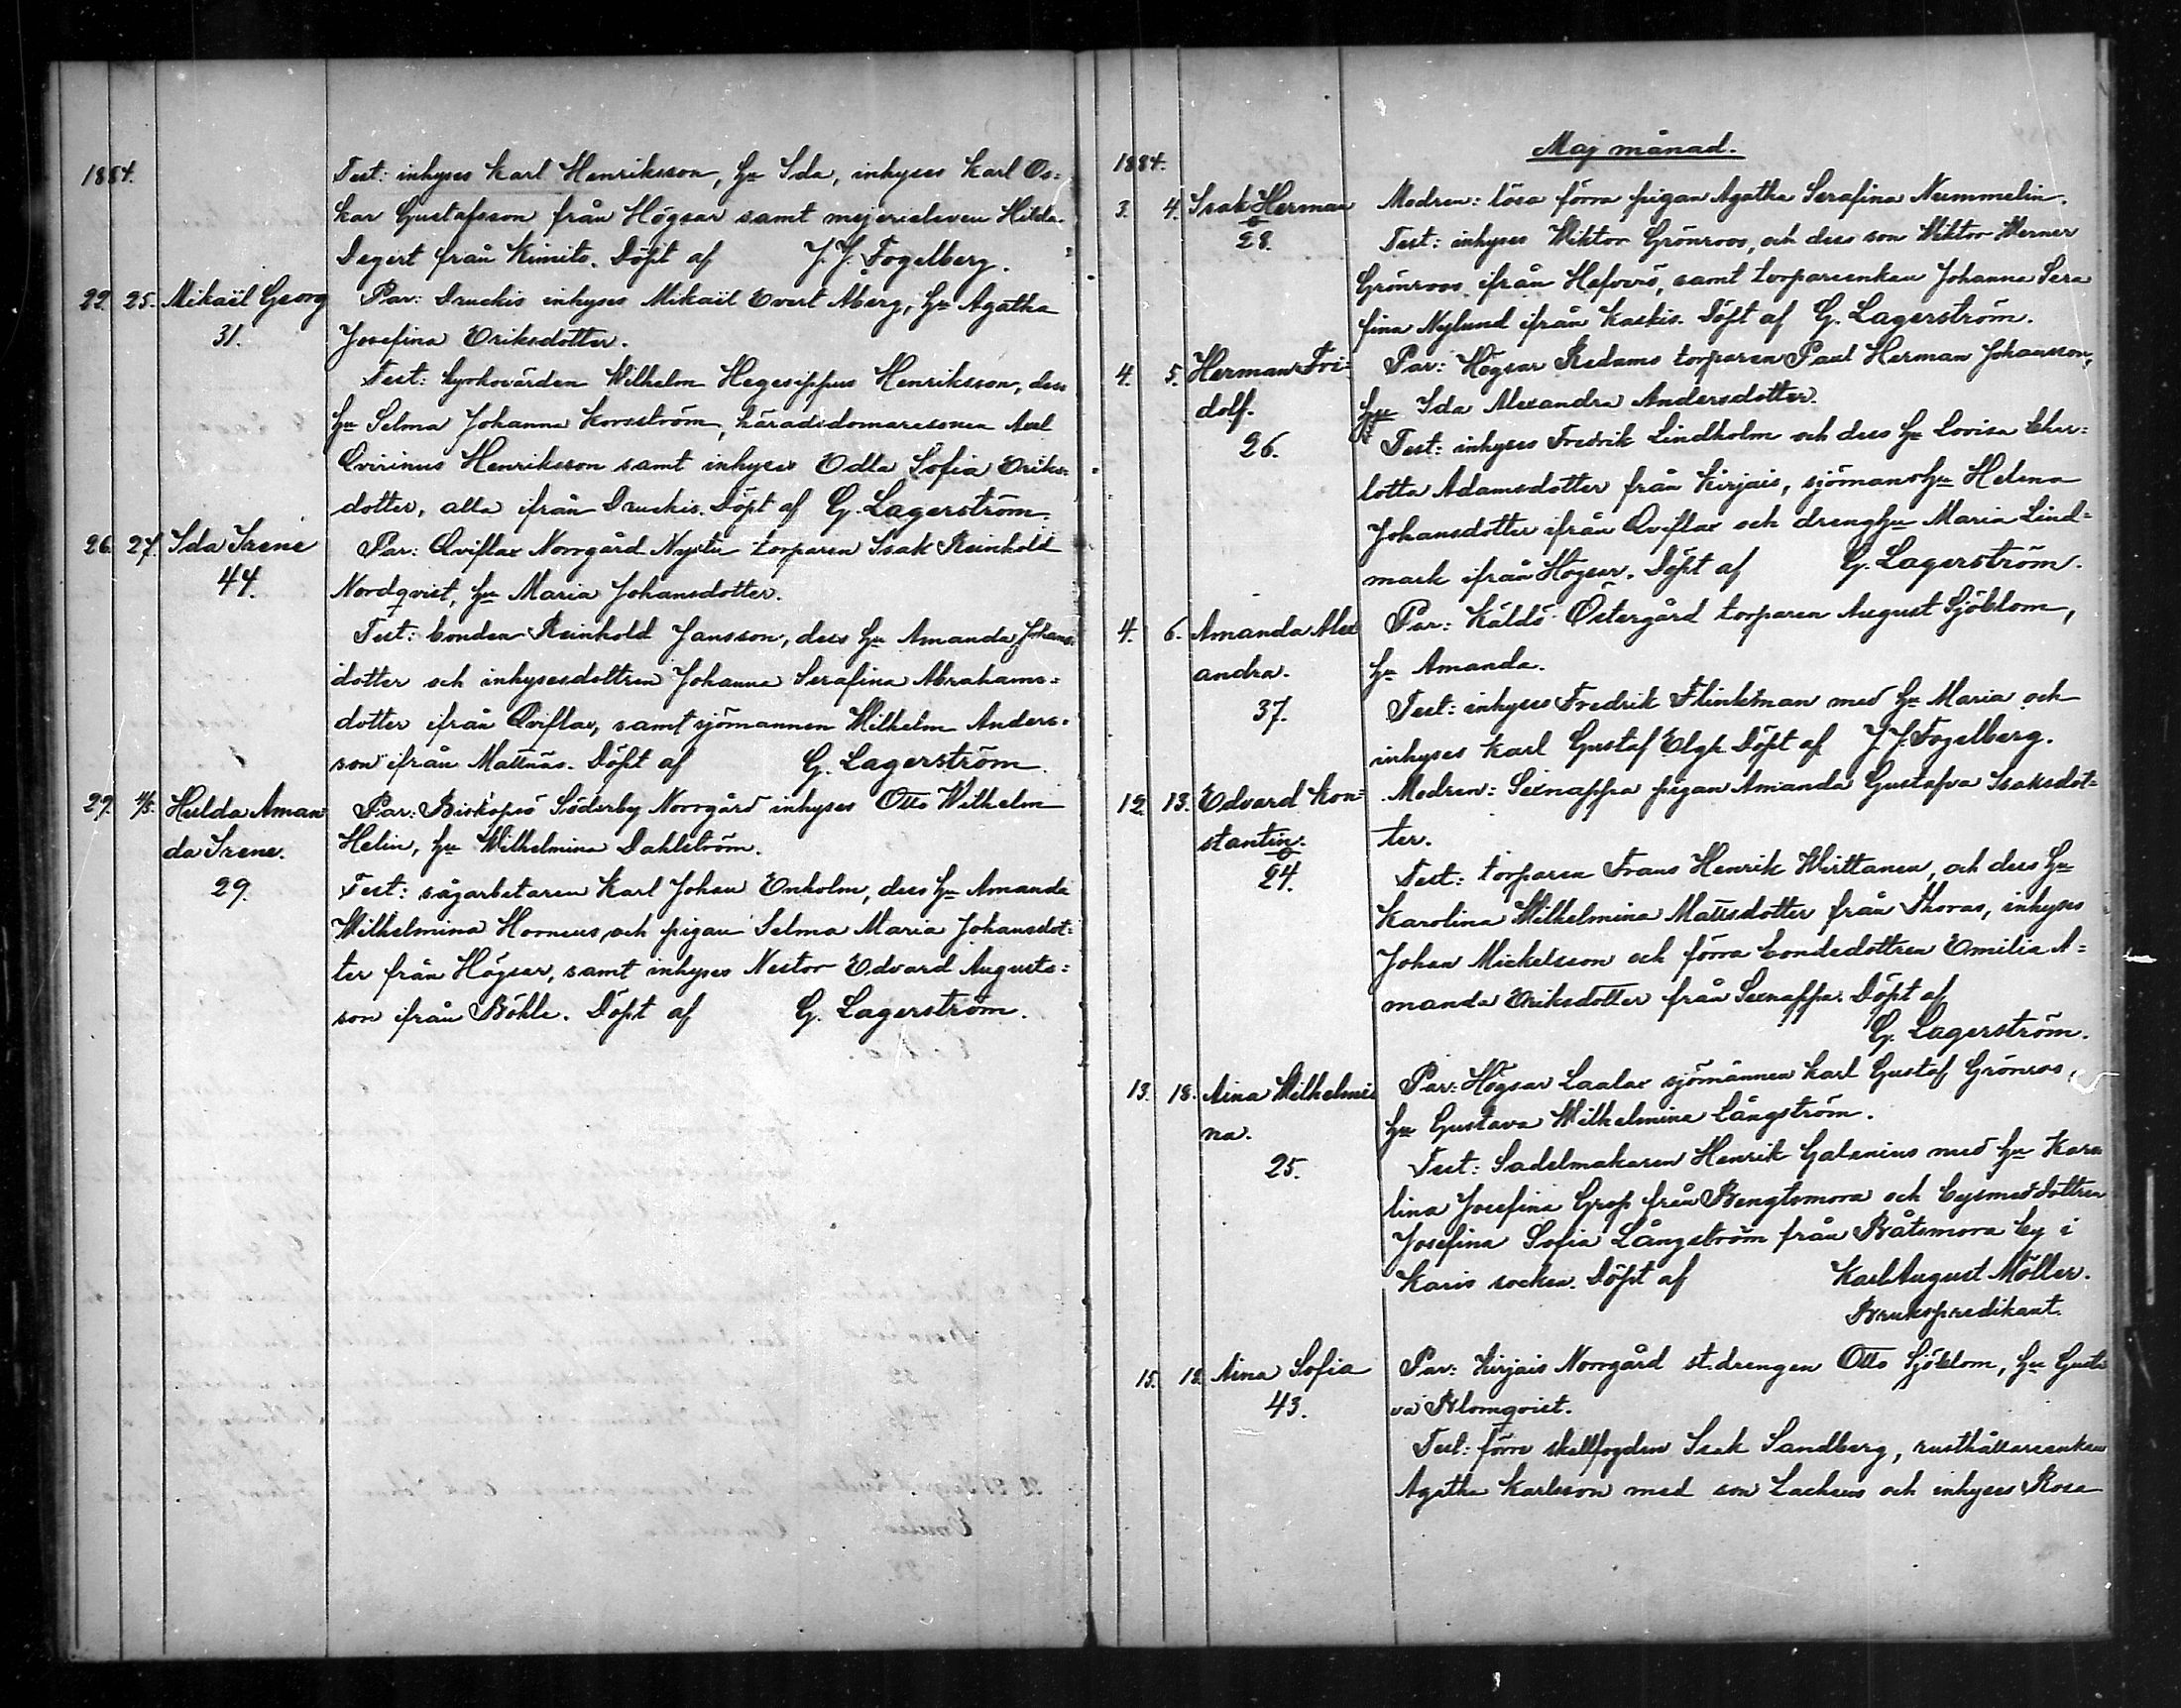 1884.
Test: inhyses Karl Henriksson, hu Ida, inhyses Karl Os=
kar Gustafsson från Högsar samt mejerieleven Hilda
Degert från Kimito. Döpt af J. J. Fogelberg.
22. 25. Mikaël Georg Par: Druckis inhyses Mikaël Evert Åberg, hu Agatha
31. Josefina Eriksdotter.
Test: kyrkovärden Wilhelm Hegesippus Henriksson, dess
hu Selma Johanna Korsström, häradsdomaresonen Axel
Qvirinus Henriksson samt inhyses Edla Sofia Eriks=
dotter, alla ifrån Druckis. Döpt af G. Lagerström.
26. 27. Ida Irene Par: Qviflax Norrgård Nystu torparen Isak Reinhold
44. Nordqvist, hu Maria Johansdotter.
Test: bonden Reinhold Jansson, dess hu Amanda Johans=
dotter och inhysesdottren Johanna Serafina Abrahams=
dotter ifrån Qviflax, samt sjömannen Wilhelm Anders=
son ifrån Mattnäs. Döpt af G. Lagerström.
27. 4/5. Hulda Aman Par: Biskopsö Söderby Norrgård inhyses Otto Wilhelm
da Irene. Helin, hu Wilhelmina Dahlström.
29. Test: sågarbetaren Karl Johan Enholm, dess hu Amanda
Wilhelmina Horneus, och pigan Selma Maria Johansdot=
ter från Högsar, samt inhyses Nestor Edvard Augusts=
son ifrån Böhle. Döpt af G. Lagerström.
Maj månad.
1884.
3. 4. Isak Herman Modren: lösa förra pigan Agatha Serafina Nummelin.
28. Test: inhyses Wiktor Grönroos, och dess son Wiktor Werner
Grönroos ifrån Hafverö, samt torpareenkan Johanna Sera
fina Nylund ifrån Kaskis. Döpt af G. Lagerström.
4. 5. Herman Fri= Par: Högsar Redams torparen Paul Herman Johansson,
dolf. hu Ida Alexandra Andersdotter.
26. Test: inhyses Fredrik Lindholm och dess hu Lovisa Char=
lotta Adamsdotter från Kirjais, sjömans hu Helena
Johansdotter ifrån Qviflax och dreng hu Maria Lind=
mark ifrån Högsar. Döpt af G. Lagerström.
4. 6. Amanda Alex Par: Käldö Östergård torparen August Sjöblom,
andra. hu Amanda.
37. Test: inhyses Fredrik Flinkman med hu Maria och
inhyses Karl Gustaf Elgh. Döpt af J. J. Fogelberg.
12. 13. Edvard Kon= Modren: Sexnappa pigan Amanda Gustafva Isaksdot=
stantin. ter.
24. Test: torparen Frans Henrik Wirttanen, och dess hu
Karolina Wilhelmina Mattsdotter från Thoras, inhyses
Johan Mickelsson och förra bondedottren Emilia A=
manda Eriksdotter från Sexnappa. Döpt af
G. Lagerström.
13. 18. Aina Wilhelmi Par: Högsar Laalax sjömannen Karl Gustaf Grönroos,
na. hu Gustava Wilhelmina Långström.
25. Test: Sadelmakaren Henrik Galenius med hu Karo
lina Josefina Grop från Bengtsmora och bysmedsdottren
Josefina Sofia Långström från Båtsmora by i
Karis socken. Döpt af Karl August Möller.
Brukspredikant.
15. 18. Aina Sofia Par: Kirjais Norrgård st.drengen Otto Sjöblom, hu Gusta
43. va Blomqvist.
Test: förre skallfogden Isak Sandberg, rusthållareenkan
Agatha Karlsson med son Lacheus och inhyses Rosa